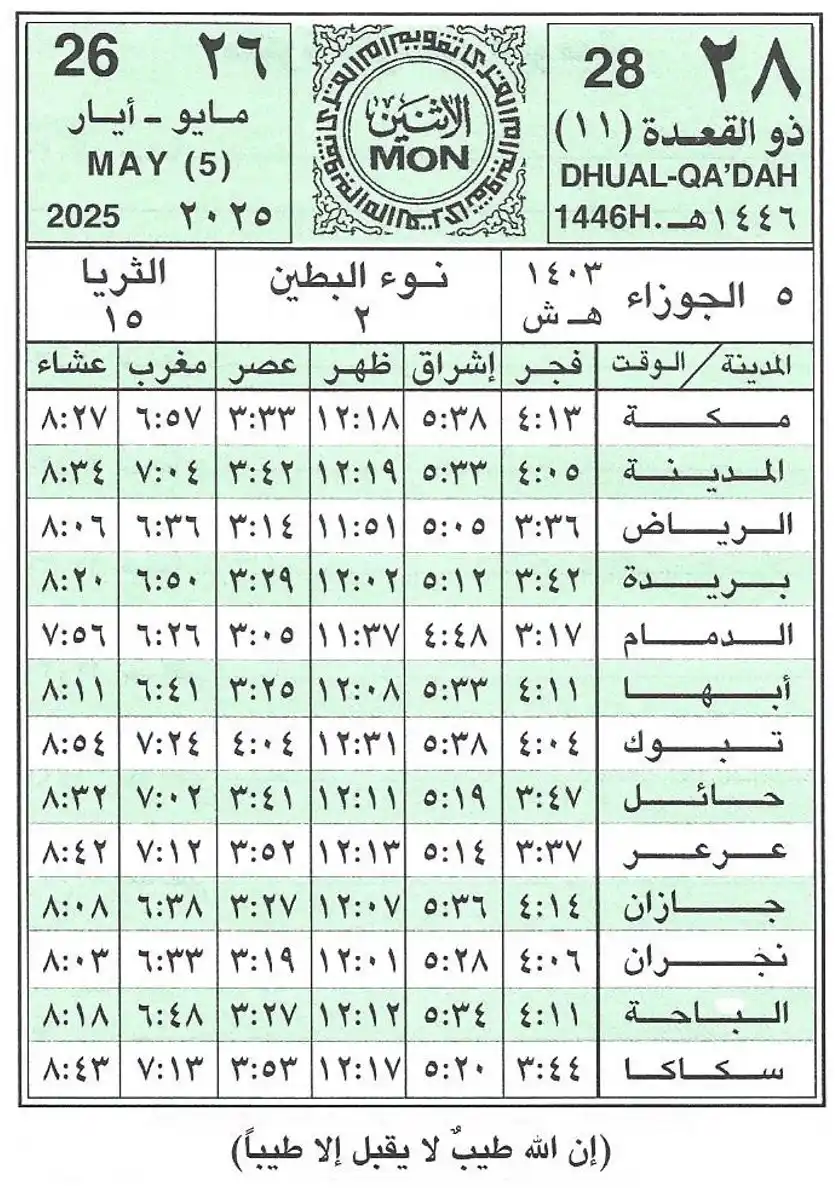 ٢٨ 28
ذو القعدة (١١)
DHUAL-QA'DAH
١٤٤٦هـ. 1446H.
الاثنين
MON
٢٦ 26
مايو - أيار
MAY (5)
٢٠٢٥ 2025
٥ الجوزاء ١٤٠٣ هـ ش
نوء البطين ٢
الثريا ١٥
المدينة/الوقت فجر إشراق ظهر عصر مغرب عشاء
مكة ٤:١٣ ٥:٣٨ ١٢:١٨ ٣:٣٣ ٦:٥٧ ٨:٢٧
المدينة ٤:٠٥ ٥:٣٣ ١٢:١٩ ٣:٤٢ ٧:٠٤ ٨:٣٤
الرياض ٣:٣٦ ٥:٠٥ ١١:٥١ ٣:١٤ ٦:٣٦ ٨:٠٦
بريدة ٣:٤٢ ٥:١٢ ١٢:٠٢ ٣:٢٩ ٦:٥٠ ٨:٢٠
الدمام ٣:١٧ ٤:٤٨ ١١:٣٧ ٣:٠٥ ٦:٢٦ ٧:٥٦
أبها ٤:١١ ٥:٣٣ ١٢:٠٨ ٣:٢٥ ٦:٤١ ٨:١١
تبوك ٤:٠٤ ٥:٣٨ ١٢:٣١ ٤:٠٤ ٧:٢٤ ٨:٥٤
حائل ٣:٤٧ ٥:١٩ ١٢:١١ ٣:٤١ ٧:٠٢ ٨:٣٢
عرعر ٣:٣٧ ٥:١٤ ١٢:١٣ ٣:٥٢ ٧:١٢ ٨:٤٢
جازان ٤:١٤ ٥:٣٦ ١٢:٠٧ ٣:٢٧ ٦:٣٨ ٨:٠٨
نجران ٤:٠٦ ٥:٢٨ ١٢:٠١ ٣:١٩ ٦:٣٣ ٨:٠٣
الباحة ٤:١١ ٥:٣٤ ١٢:١٢ ٣:٢٧ ٦:٤٨ ٨:١٨
سكاكا ٣:٤٤ ٥:٢٠ ١٢:١٧ ٣:٥٣ ٧:١٣ ٨:٤٣
(إن الله طيبٌ لا يقبل إلا طيباً)